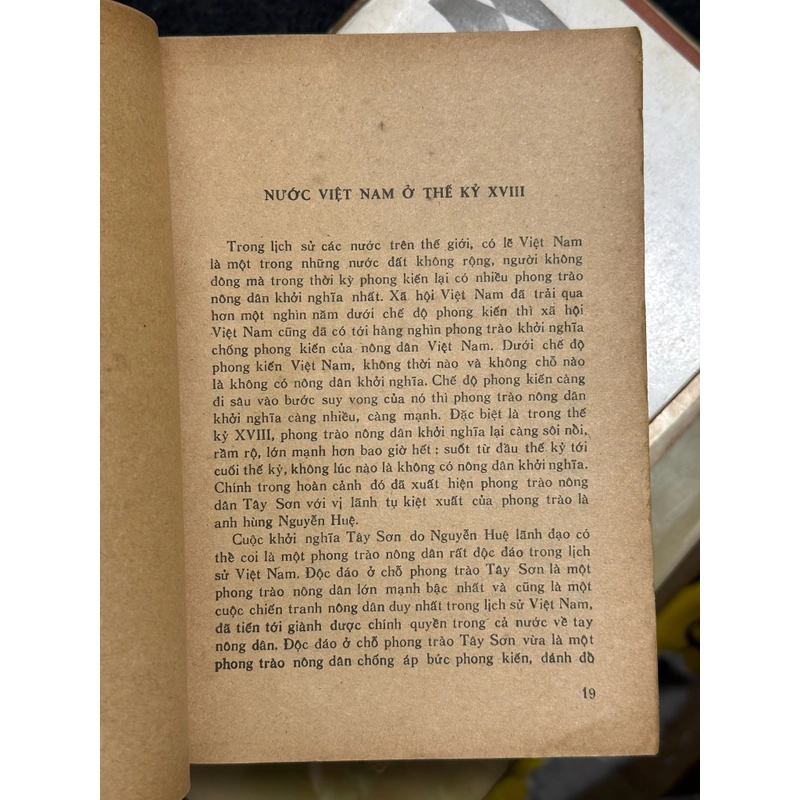 NƯỚC VIỆT NAM Ở THẾ KỶ XVIII
Trong lịch sử các nước trên thế giới, có lẽ Việt Nam
là một trong những nước đất không rộng, người không
đông mà trong thời kỳ phong kiến lại có nhiều phong trào
nông dân khởi nghĩa nhất. Xã hội Việt Nam đã trải qua
hơn một nghìn năm dưới chế độ phong kiến thì xã hội
Việt Nam cũng đã có tới hàng nghìn phong trào khởi nghĩa
chống phong kiến của nông dân Việt Nam. Dưới chế độ
phong kiến Việt Nam, không thời nào và không chỗ nào
là không có nông dân khởi nghĩa. Chế độ phong kiến càng
đi sâu vào bước suy vong của nó thì phong trào nông dân
khởi nghĩa càng nhiều, càng mạnh. Đặc biệt là trong thế
kỷ XVIII, phong trào nông dân khởi nghĩa lại càng sôi nổi,
rầm rộ, lớn mạnh hơn bao giờ hết : suốt từ đầu thế kỷ tới
cuối thế kỷ, không lúc nào là không có nông dân khởi nghĩa.
Chính trong hoàn cảnh đó đã xuất hiện phong trào nông
dân Tây Sơn với vị lãnh tụ kiệt xuất của phong trào là
anh hùng Nguyễn Huệ.
Cuộc khởi nghĩa Tây Sơn do Nguyễn Huệ lãnh đạo có
thể coi là một phong trào nông dân rất độc đáo trong lịch
sử Việt Nam. Độc đáo ở chỗ phong trào Tây Sơn là một
phong trào nông dân lớn mạnh bậc nhất và cũng là một
cuộc chiến tranh nông dân duy nhất trong lịch sử Việt Nam,
đã tiến tới giành được chính quyền trong cả nước về tay
nông dân. Độc đáo ở chỗ phong trào Tây Sơn vừa là một
phong trào nông dân chống áp bức phong kiến, đánh đổ
19